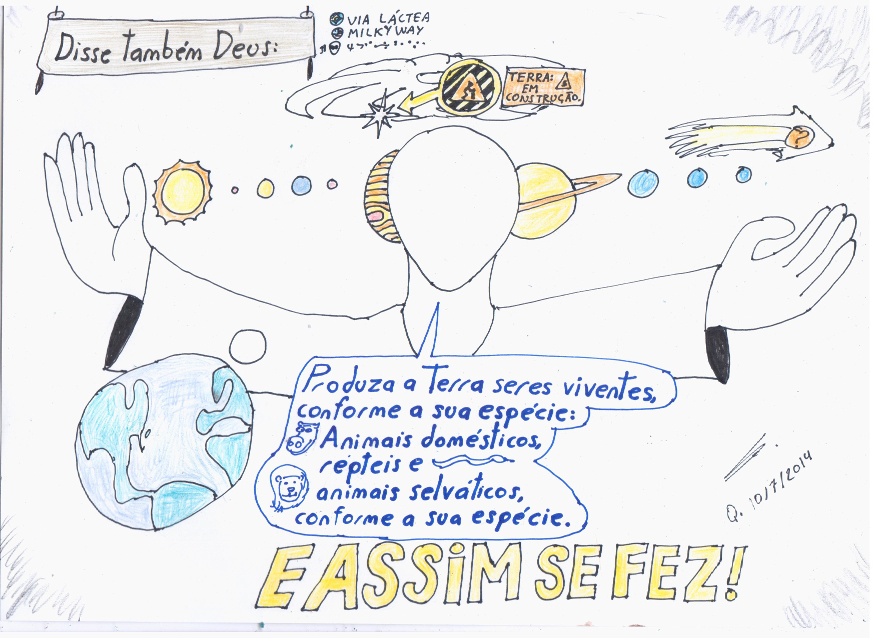 Disse também Deus:
VIA LÁCTEA
MILKY WAY
TERRA:
EM
CONSTRUÇÃO.
?
Produza a Terra seres viventes,
conforme a sua espécie:
Animais domésticos,
répteis e
animais selváticos,
conforme a sua espécie.
Q. 10/7/2014
E ASSiM SE FEZ!